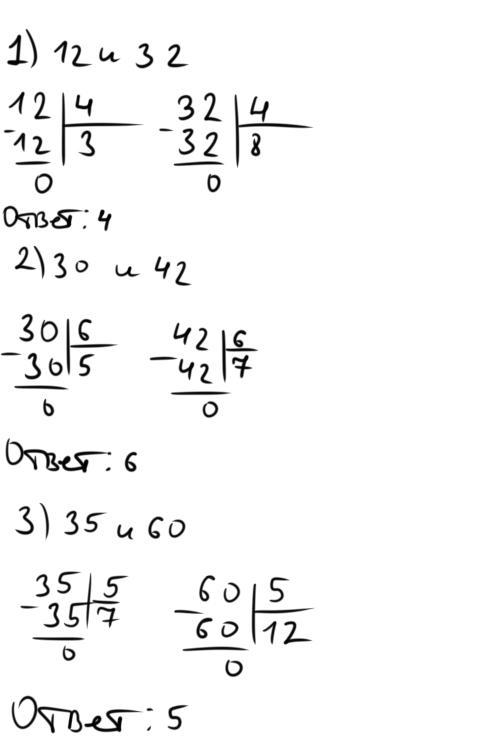 1) 12 и 32
12 4 32 4
-12 3 -32 8
0 0
Ответ: 4
2) 30 и 42
30 6 42 6
-30 5 -42 7
0 0
Ответ: 6
3) 35 и 60
35 5 60 5
-35 7 -60 12
0 0
Ответ: 5